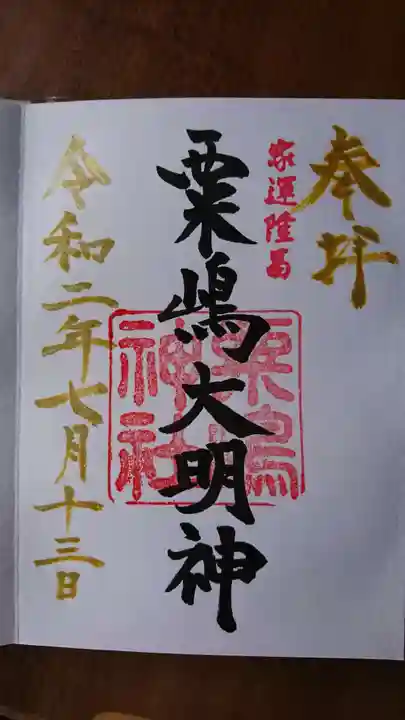 奉拝
家運隆昌
粟嶋大明神
粟嶋
神社
令和二年七月十三日